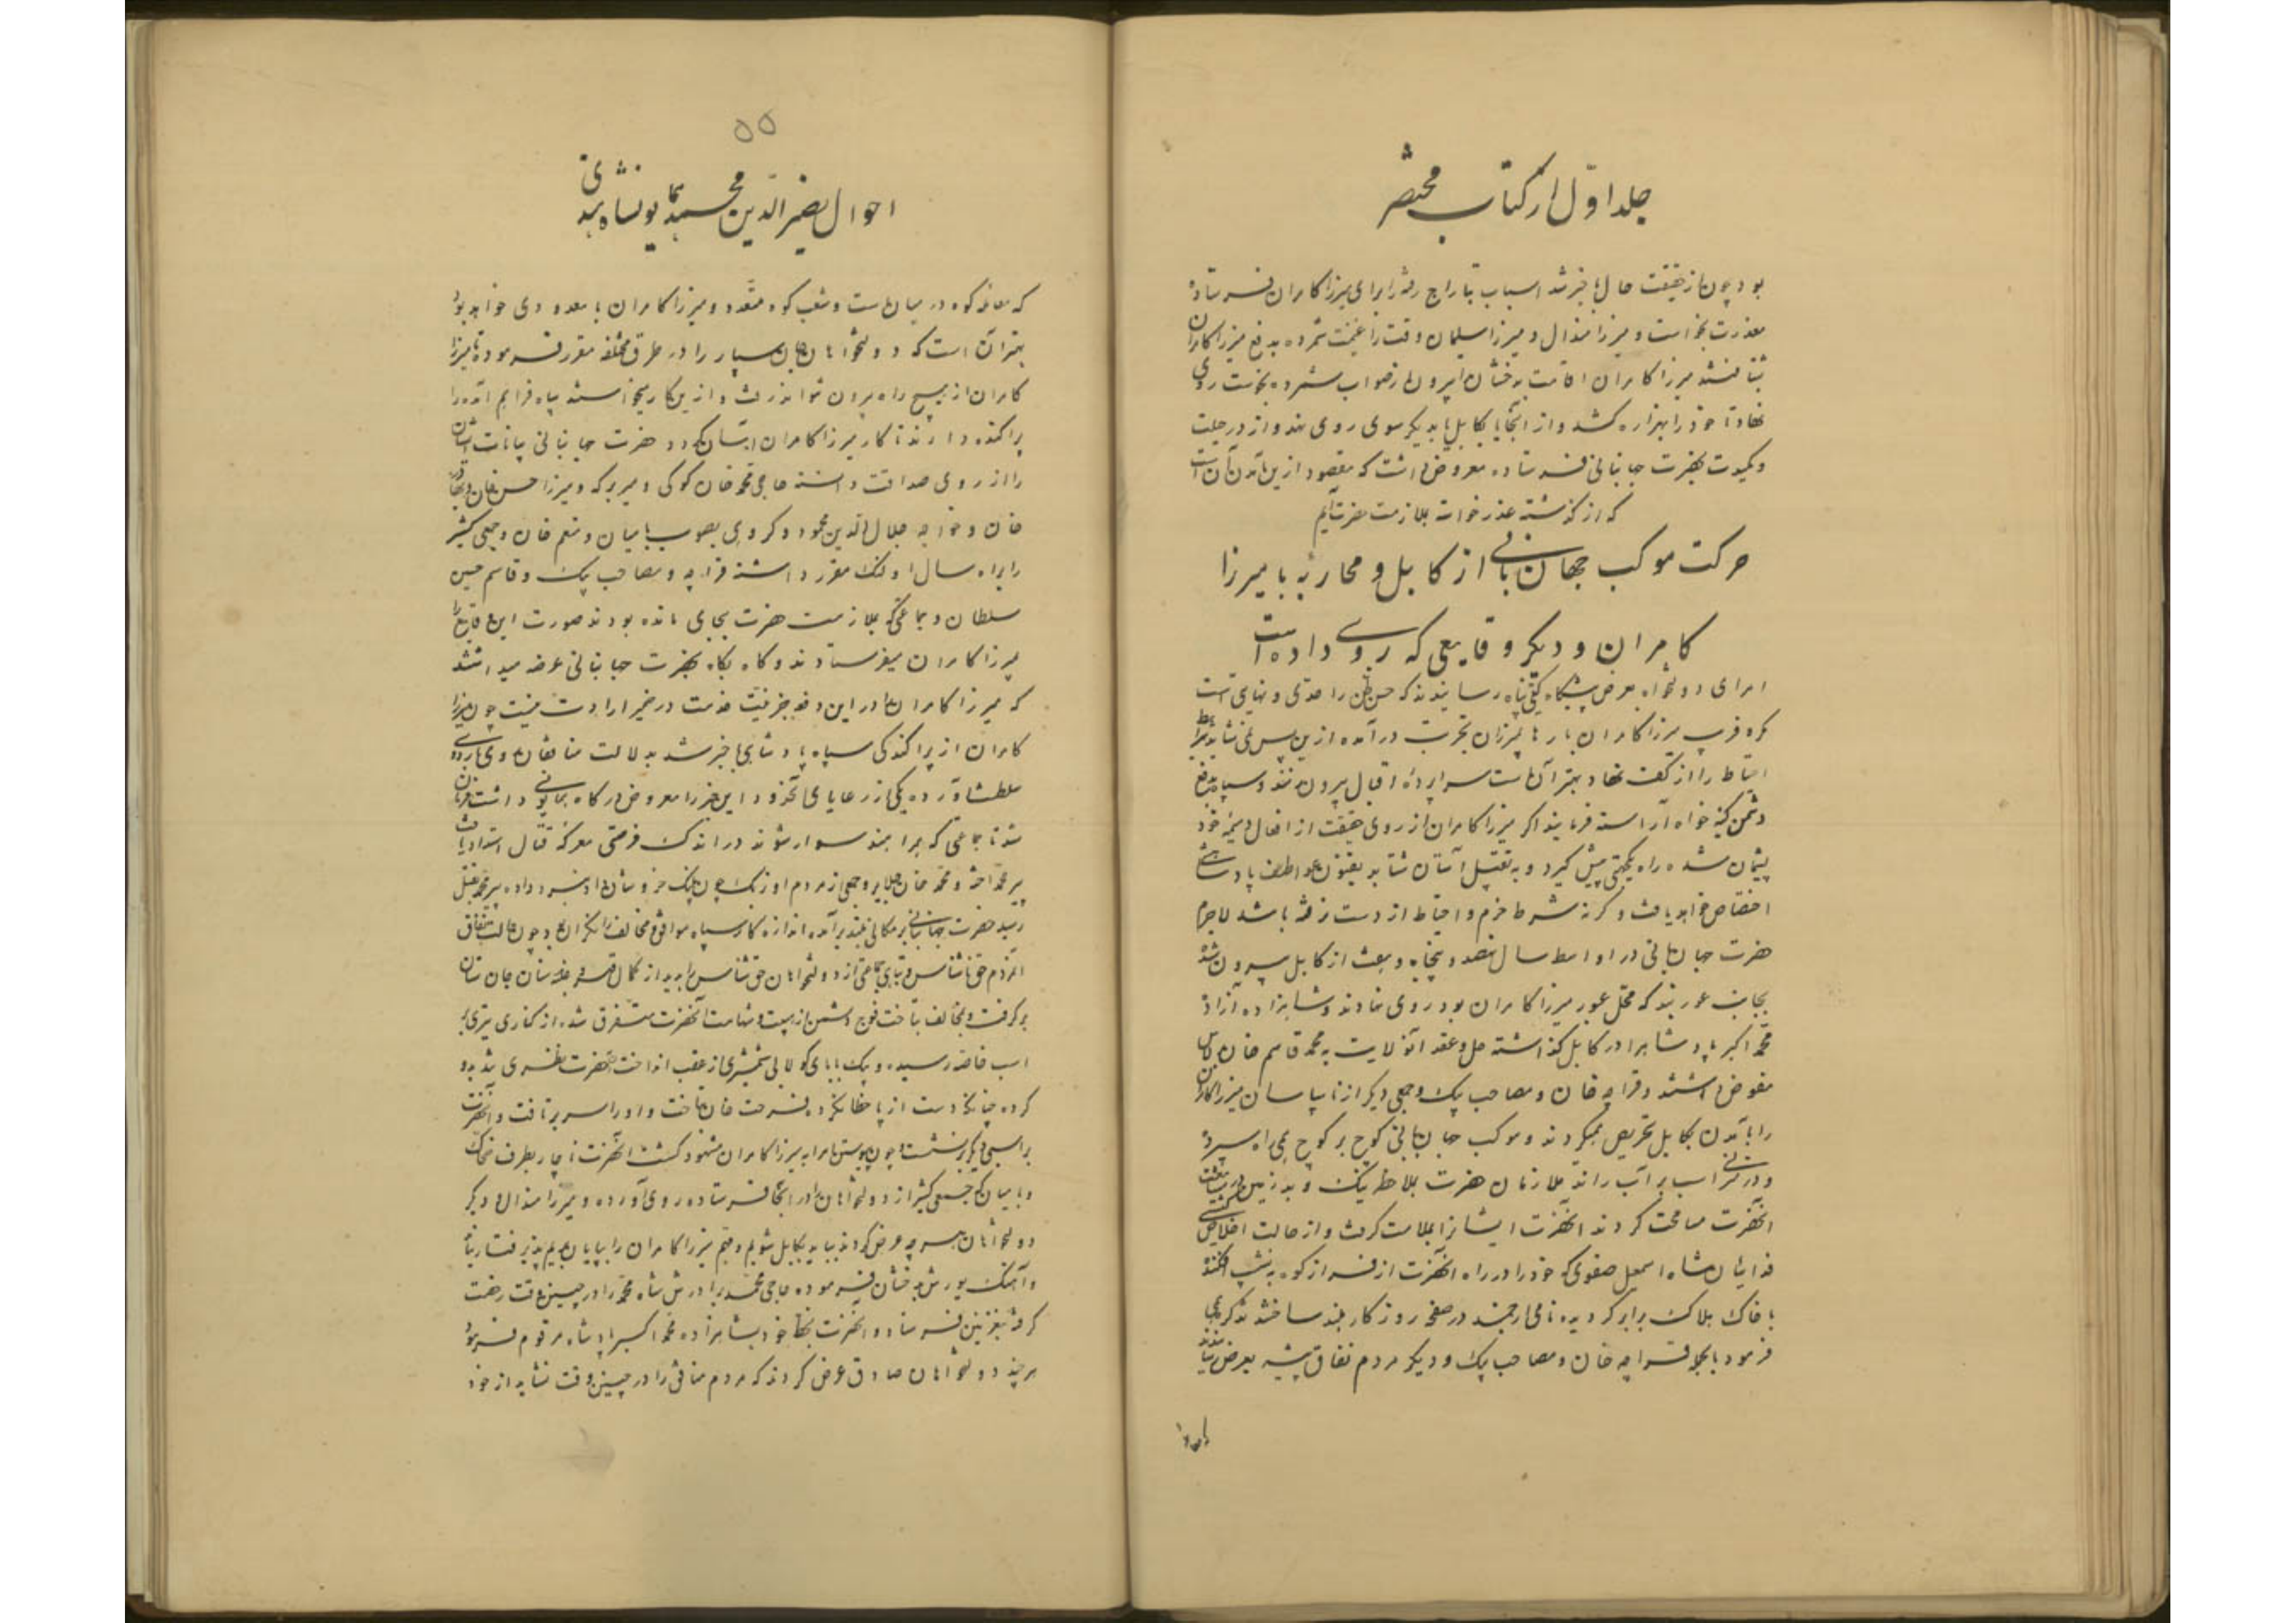 جلد اوّل از کتاب مختصر
بود چون از حقیقت حال باخبر شد اسباب بتاراج رفته را برای میرزا کامران فرستاده
معذرت بخواست و میرزا هندال و میرزا سلیمان وقت را غنیمت شمرده بدفع میرزا کامران
شتافتند میرزا کامران اقامت بدخشان را بیرون از صواب شمرده بخوست روی
نهاد تا خود را بهزاره کشد و از آنجا یا بکابل یا بدیگر سوی روی نهد و از در حیلت
و کیدت بحضرت جهانبانی فرستاده معروض داشت که مقصود ازین آمدن آن است
که از گذشته عذر خواسته بملازمت حضرت آیم
حرکت موکب جهانبانی از کابل و محاربه با میرزا
کامران و دیگر وقایعی که روی داده است
امرای دولتخواه بعرض پیشگاه گیتی پناه رسانیدند که حسن ظن را حدّی و نهایتی است
مکر و فریب میرزا کامران بارها بمیزان تجربت درآمده ازین پس نمی شاید شرط
احتیاط را از کف نهاد بهتر آن است سراپرده اقبال بیرون زنند و سپاه بدفع
دشمن کینه خواه آراسته فرمایند اگر میرزا کامران از روی حقیقت از افعال ذمیمه خود
پشیمان شده راه یکجهتی پیش گیرد و به تقبیل آستان شتابد بفنون عواطف پادشاهی
اختصاص خواهد یافت و گرنه شرط حزم و احتیاط از دست نرفته باشد لاجرم
حضرت جهانبانی در اواسط سال نهصد و پنجاه و هفت از کابل بیرون شده
بجانب غوربند که محل عبور میرزا کامران بود روی نهادند و شاهزاده آزاده
محمّد اکبر پادشاه را در کابل گذاشته حل و عقد آنولایت به محمّد قاسم خان
مفوض داشتند و قراچه خان و مصاحب بیک و جمعی دیگر از ناسپاسان میرزا کامران
را بآمدن بکابل تحریص میکردند و موکب جهانبانی کوچ بر کوچ همی راه سپرد
و در اسب بر آب راند ملازمان حضرت بملاحظه
آنحضرت مسامحت کردند آنحضرت ایشانرا بملامت گرفت و از حالت اخلاص
فدائیان شاه اسمعیل صفوی که خود را در راه آنحضرت از فراز کوه به نشیب افکنده
با خاک هلاک برابر گردیده نامی ارجمند در صفحه روزگار بلند ساختند تذکره همی
فرمود بالجمله قراچه خان و مصاحب بیک و دیگر مردم نفاق پیشه بعرض رسانیدند
۵۵
احوال نصیر الدّین محمّد همایونشاه هندی
که معامله کوه در میان است و شعب کوه متعدّد و میرزا کامران با معدودی خواهد بود
بهتر آن است که دولتخواهان جان سپار را در طرق مختلفه مقرر فرموده تا میرزا
کامران از هیچ راه بیرون نتواند رفت و ازین کار میخواستند سپاه فراهم آمده را
پراکنده دارند تا کار میرزا کامران آسان گردد حضرت جهانبانی بیانات ایشان
را از روی صداقت دانسته حاجی محمّد خان کوکی و میر برکه و میرزا حسن خان و بهادر
خان و خواجه جلال الدین محمود و گروهی بصوب بامیان و منعم خان و جمعی کثیر
را براه سال اولنک مقرر داشته قراچه و مصاحب بیک و قاسم حسین
سلطان و جماعتی که بملازمت حضرت بجای مانده بودند صورت این وقایع را
بمیرزا کامران میفرستادند و گاه بگاه بحضرت جهانبانی عرضه میداشتند
که میرزا کامران را در این دفعه جز نیّت خدمت در ضمیر ارادت نیست چون میرزا
کامران از پراکندگی سپاه پادشاهی باخبر شد بدلالت منافقان روی باردوی
سلطنت آورده یکی از رعایای آنحدود این خبر را معروض درگاه همایونی داشت فرمان
شد تا جماعتی که همراهند سوار شوند در اندک فرصتی معرکه قتال اشتداد یافت
پیر محمّد آخته و محمّد خان جلایر و جمعی از مردم اوزبک چون پلنگ خروشان داد نبرد داده پیر محمّد بقتل
رسید حضرت جهانبانی بر مکانی بلند برآمده اندازه کار سپاه موافق و مخالف را نگران بود چون حالت نفاق
آنمردم حق ناشناس و تباهی جماعتی از دولتخواهان حق شناس را بدید از کمال قهر و غضب سنان جان ستان
برگرفت و بمخالف بتاخت فوج دشمن از هیبت و شهامت آنحضرت متفرق شد از کناری تیری بر
اسب خاصّه رسیده و بیک بابای کولابی شمشیری از عقب انداخت آنحضرت نظری تند بدو
کرده چنانکه دست از پا خطا نکرده فرحت خان بتاخت و او را سر برتافت و آنحضرت
بر اسبی دیگر برنشست و چون پیوستن امرا به میرزا کامران مشهود گشت آنحضرت ناچار بطرف ضحّاک
و بامیان که جمعی کثیر از دولتخواهان را در آنجا فرستاده روی آورده و میرزا هندال و دیگر
دولتخواهان هر چه عرض کردند بیاید بکابل شویم و مهم میرزا کامران را بپایان بریم پذیرفتار نیامد
و آهنگ یورش بدخشان فرموده حاجی محمّد برادرش شاه محمّد را در چنین وقت رخصت
گرفته بغزنین فرستاد و آنحضرت بخط خود بشاهزاده محمّد اکبر پادشاه مرقوم فرمود
هر چند دولتخواهان صادق عرض کردند که مردم منافق را در چنین وقت نشاید از خود